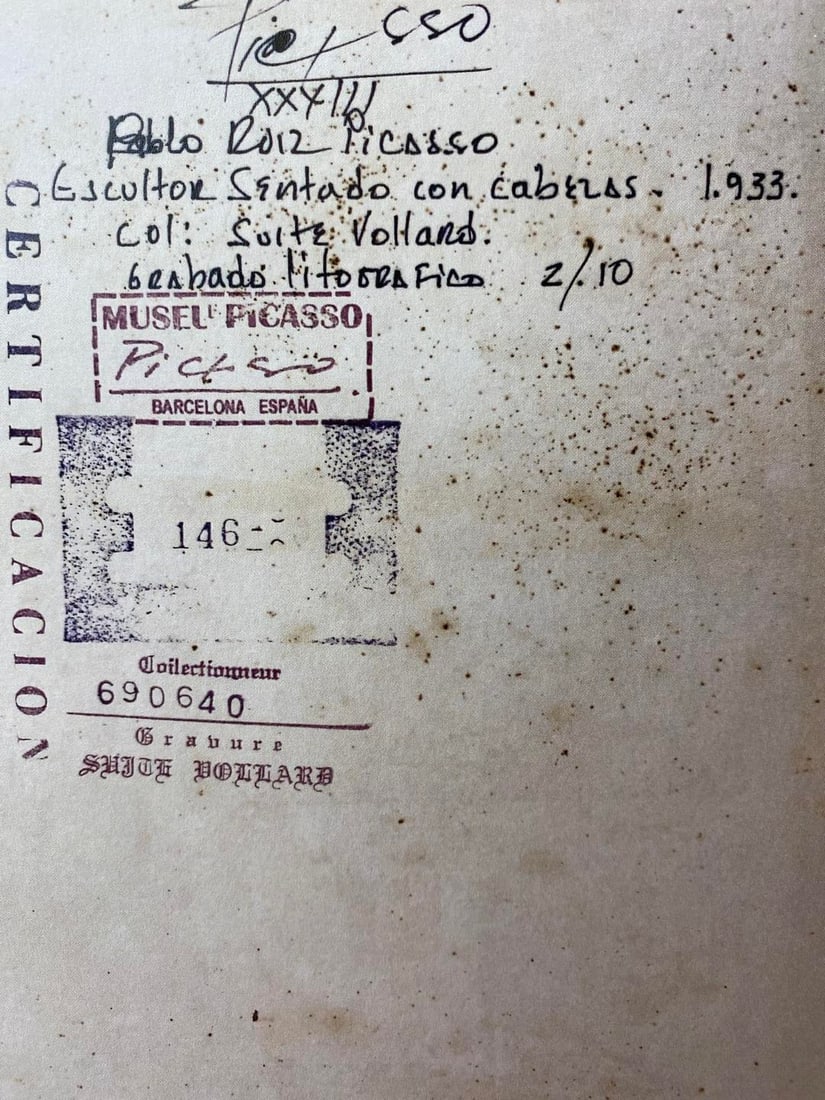 Picasso
XXXIII
Pablo Ruiz Picasso
Escultor Sentado con cabezas. 1.933.
Col: Suite Vollard.
Grabado litografico 2/10
CERTIFICACION
MUSEU PICASSO
Picasso
BARCELONA ESPAÑA
146
Collectionneur
690640
Gravure
SUITE VOLLARD